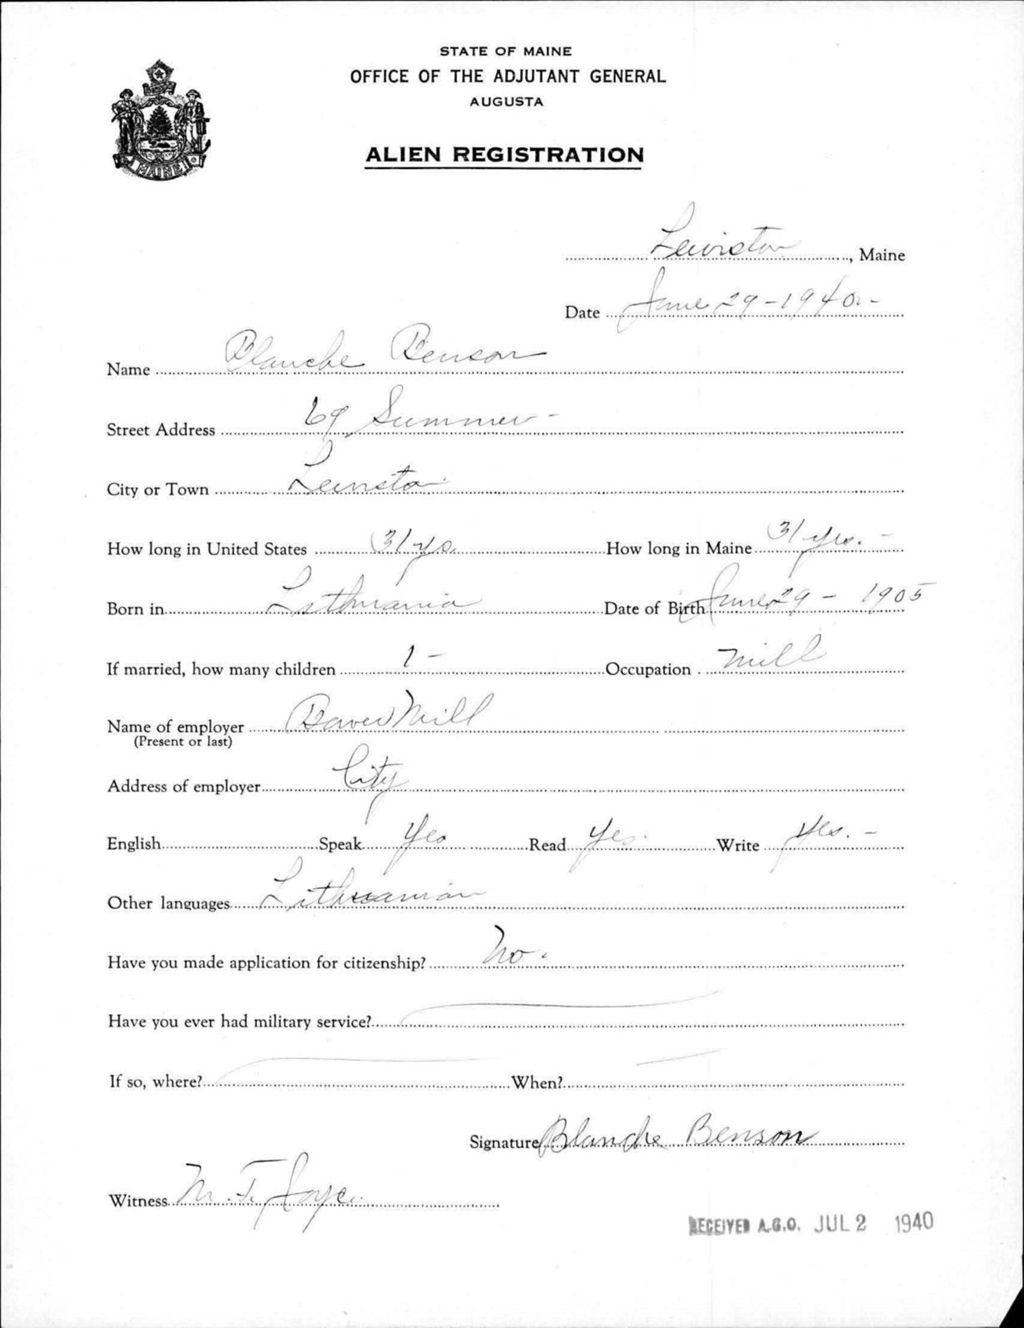 STATE OF MAINE
OFFICE OF THE ADJUTANT GENERAL
AUGUSTA
ALIEN REGISTRATION
MAINE
Lewiston, Maine
Date June 29-1940.-
Name Blanche Benson
Street Address 69 Summer-
City or Town Lewiston
How long in United States 31 ys. How long in Maine 31 yrs. -
Born in Lithuania Date of Birth June 29 - 1905
If married, how many children 1- Occupation mill
Name of employer Mill
(Present or last)
Address of employer City
English Speak Yes Read Yes. Write Yes. -
Other languages Lithuanian
Have you made application for citizenship? No.
Have you ever had military service?
If so, where? When?
Signature Blanche Benson
Witness M. T. Joyce.
RECEIVED A.G.O. JUL 2 1940